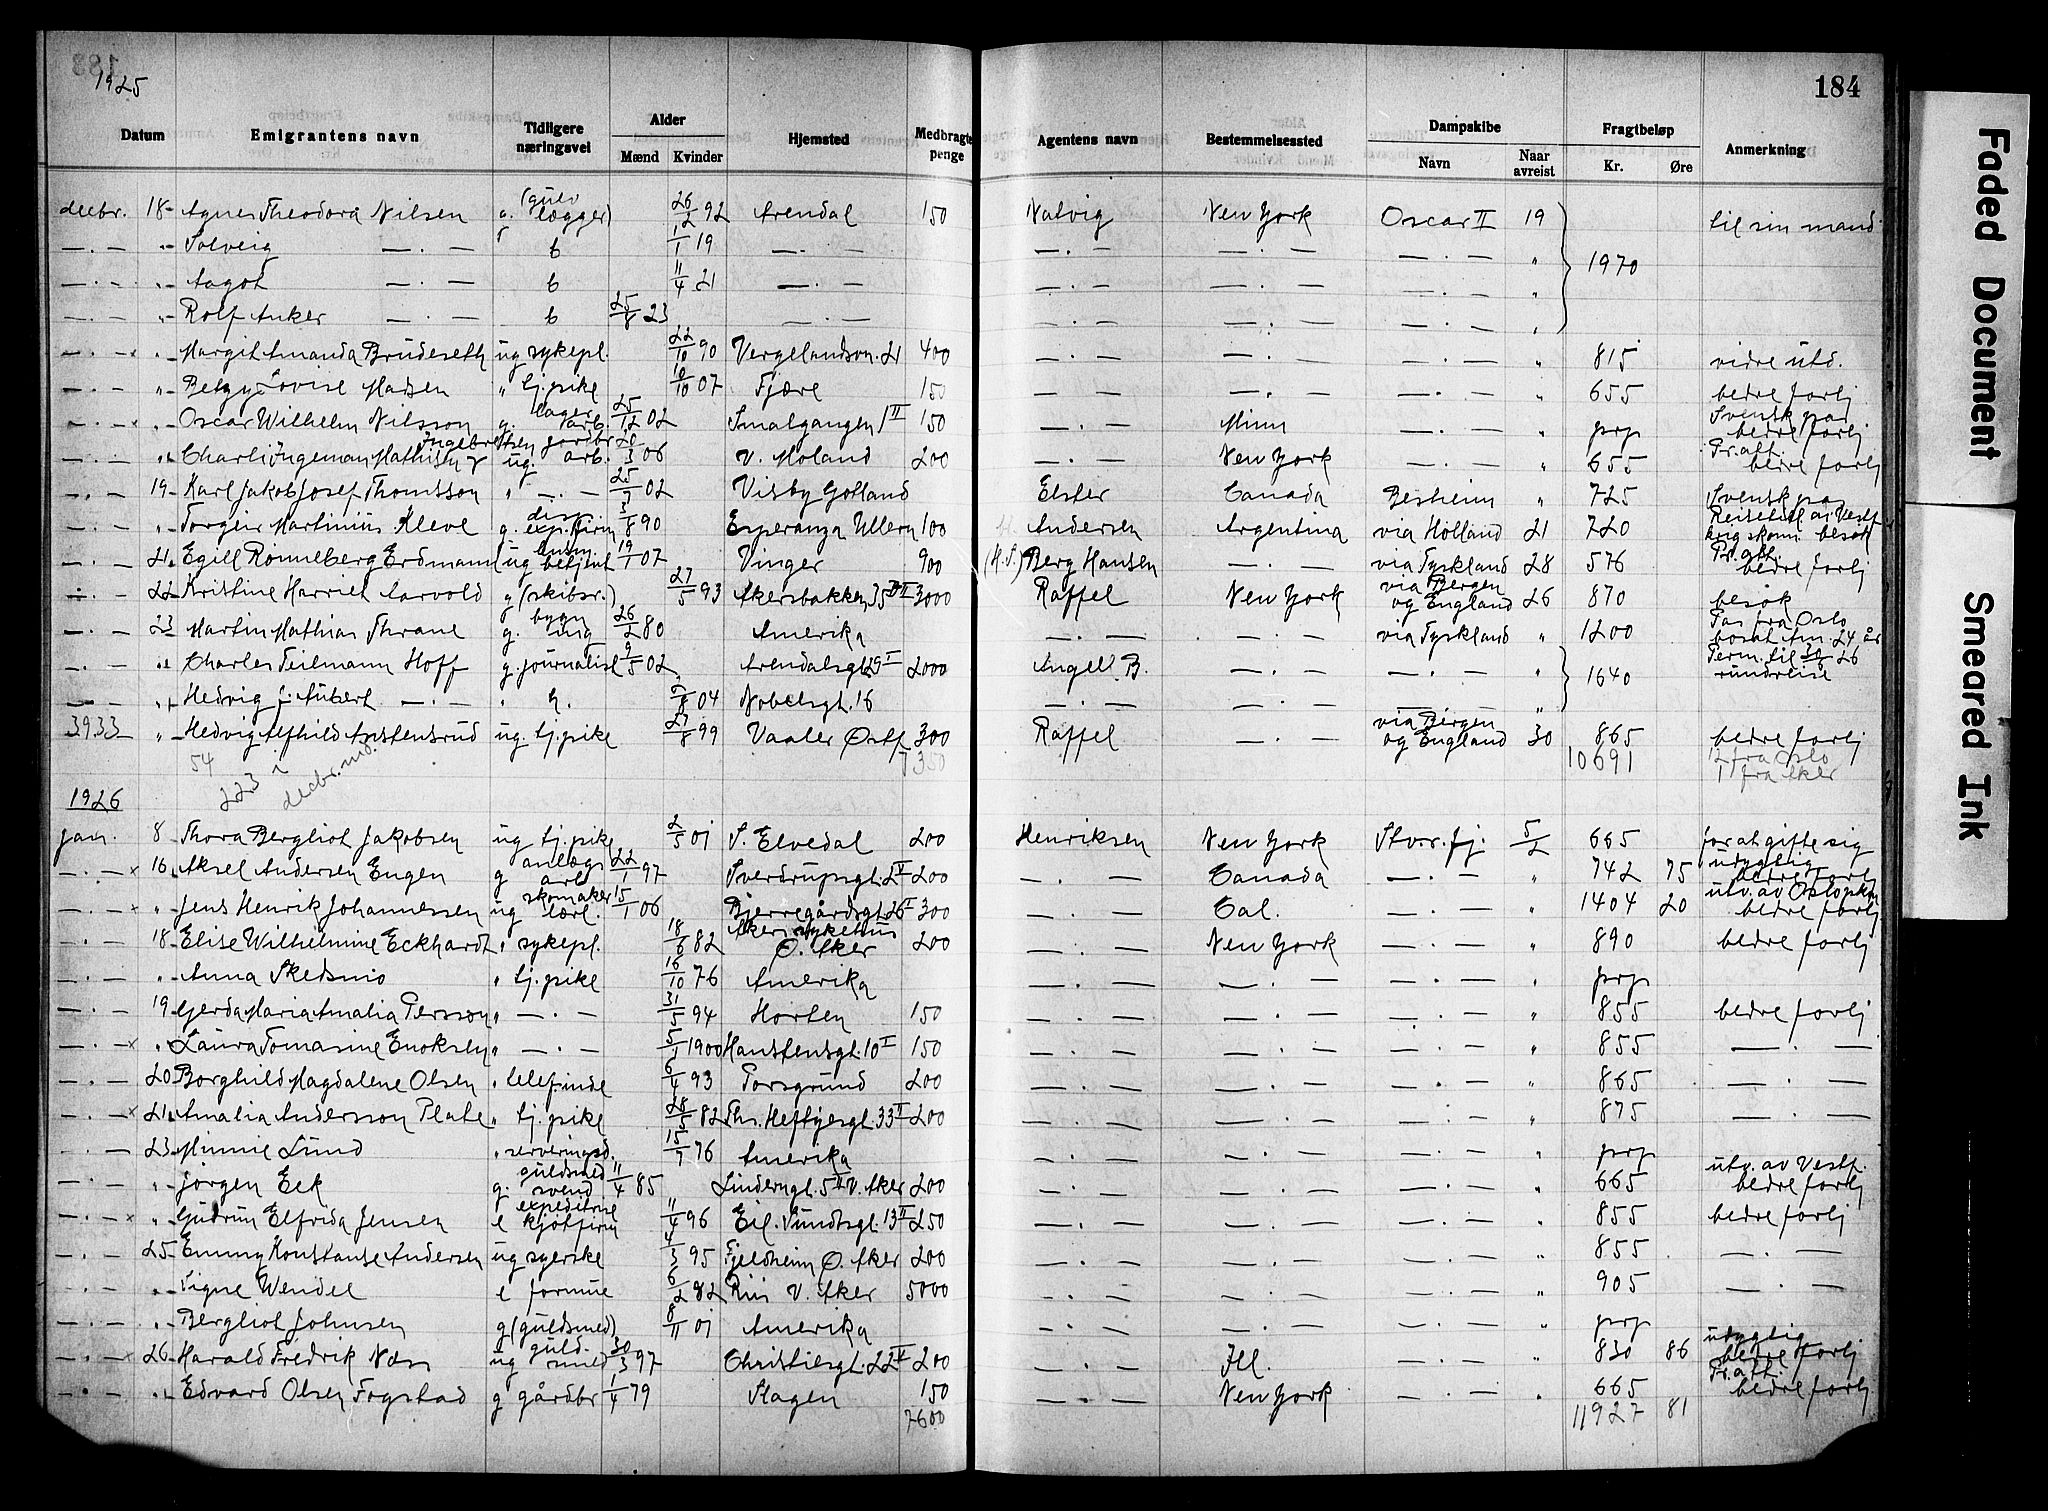 1925
184
Datum Emigrantens navn Tidligere næringsvei Alder Mænd Kvinder Hjemsted Medbragte penge Agentens navn Bestemmelsessted Dampskibe Navn Naar avreist Fragtbeløp Kr. Øre Anmerkning
decbr. 18 Agnes Theodora Nilsen g. (gulvlægger) 26/2 92 Arendal 150 Natvig New York Oscar II 19 til sin mand
— . — " Solveig — . — b 1/1 19 — . — — . — — . — — . — "
— . — " Aagot — . — b 11/4 21 — . — — . — — . — — . — " 1970
— . — " Rolf Anker — . — b 25/8 23 — . — — . — — . — — . — "
— . — x " Margit Amanda Brudeseth ug sykepl. 22/10 90 Vergelandson. 21 400 — . — — . — — . — " 815 vidre utd.
— . — " Betzy Lovise Madsen " tj.pike 10/10 07 Fjære 150 — . — — . — — . — " 655 bedre forhj
— . — x " Oscar Wilhelm Nilsson g. lager arb. 25/12 02 Smalgangen 1 II 150 — . — Minn — . — " prp Svensk pas bedre forhj
— . — " Charli Ingeman Mathisen Ingebretsen ug. jordbr arb. 20/3 06 V. Moland 200 — . — New York — . — " 655 Fr.att. bedre forhj
— . — 19 Karl Jakob Josef Thomsson " — . — 25/7 02 Visby Gotland Elster Canada Besheim " 725 Svensk pas
— . — " Torgeir Martinius Kleve g. disp. exp.firm 3/8 90 Esperanza Ullern 100 Andersen Argentina via Holland 21 720 Reisetill av Vestf krigskomm besøk
— . — 21 Egill Ronnelberg Erdmann ug betjent 19/1 07 Vinger 900 (H.S.) Berg Hansen — . — via Tyskland 28 576 Fr.att. bedre forhj
— . — 22 Kristine Harriet Aarvold g (skibsr.) 27/5 93 Akersbakken 35 II 3000 Raffel New York via Bergen og England 26 870 besøk
— . — 23 Martin Mathias Thrane g. bygn ing 26/2 80 Amerika — . — — . — via Tyskland " 1200 Pas fra Oslo bosat Am. 24 år
— . — " Charles Teilmann Hoff g. journalist 9/5 02 Arendalsgt 29 I 2000 Angell B. — . — — . — " 1640 Perm. til 30/6 26 rundreise
— . — " Hedvig J. Aubert — . — " h. 5/8 04 Nobelsgt. 16 — . — — . — — . — "
3933 " Hedvig Alfhild Astensrud ug. tj.pike 27/8 99 Vaaler Østf 300 Raffel — . — via Bergen og England 30 865 bedre forhj
54 7350 10691 12 fra Oslo
223 i decbr. md. 11 fra Aker
1926
jan. 8 Thora Bergliot Jakobsen ug tj.pike 2/5 01 S. Elvedal 200 Henriksen New York Stv.r.fj. 5/2 665 for at gifte sig
— . — x 16 Aksel Andersen Engen g anlegs arb 22/1 97 Sverdrupsgt. 2 V 200 — . — Canada — . — " 742 75 udyglig bedre forhj
— . — x " Jens Henrik Johannessen ug skomaker lærl. 15/1 06 Bjerregårdsgt 26 I 300 — . — Cal. — . — " 1404 20 utv. av Oslopkm bedre forhj
— . — 18 Elise Wilhelmine Eckhardt " sykepl. 18/6 82 Aker sykehus Ø. Aker 200 — . — New York — . — " 890 bedre forhj
— . — " Anna Skedsmo " tj.pike 16/10 76 Amerika — . — — . — — . — " prp
— . — 19 Gerda Maria Amalia Persson " — . — 31/5 94 Horten 150 — . — — . — — . — " 855 bedre forhj
— . — x " Laura Tomasine Enoksen " — . — 5/1 1900 Hansteensgt. 10 I 150 — . — — . — — . — " 855 — . —
— . — 20 Borghild Magdalene Olsen " telef.inde 6/4 93 Porsgrund 200 — . — — . — — . — " 865 — . —
— . — x 21 Amalia Andersson Plate " tj.pike 28/5 82 Thr. Heftyesgt. 33 II 200 — . — — . — — . — " 875 — . —
— . — 23 Minnie Lund " serveringsd. 15/7 76 Amerika — . — — . — — . — " prp
— . — " Jørgen Eek g. guldsmed svend 11/4 85 Linderngt. 5 II V. Aker 200 — . — — . — — . — " 665 utv. av Vestf. bedre forhj
— . — x " Gudrun Elfrida Jensen e expeditrise kjøtfirm 11/4 96 Eil. Sundtsgt. 13 II 250 — . — — . — — . — " 855 bedre forhj
— . — 25 Emmy Konstanse Andersen ug syerske 4/3 95 Fjeldheim Ø. Aker 200 — . — — . — — . — " 855 — . —
— . — " Signe Wendel e formue 6/2 82 Riis V. Aker 5000 — . — — . — — . — " 905 — . —
— . — " Bergliot Johnsen g (guldsmed) 8/11 01 Amerika — . — — . — — . — " prp
— . — x 26 Harald Fredrik Næs ug guldsmed 30/3 97 Christiesgt. 22 V 200 — . — Ill. — . — " 830 86 udyglig bedre forhj
— . — " Edvard Olsen Fogstad g gårdbr 1/4 79 Slagen 150 — . — New York — . — " 665 Fr.att. bedre forhj
7600 11927 81
Faded Document
Smeared Ink